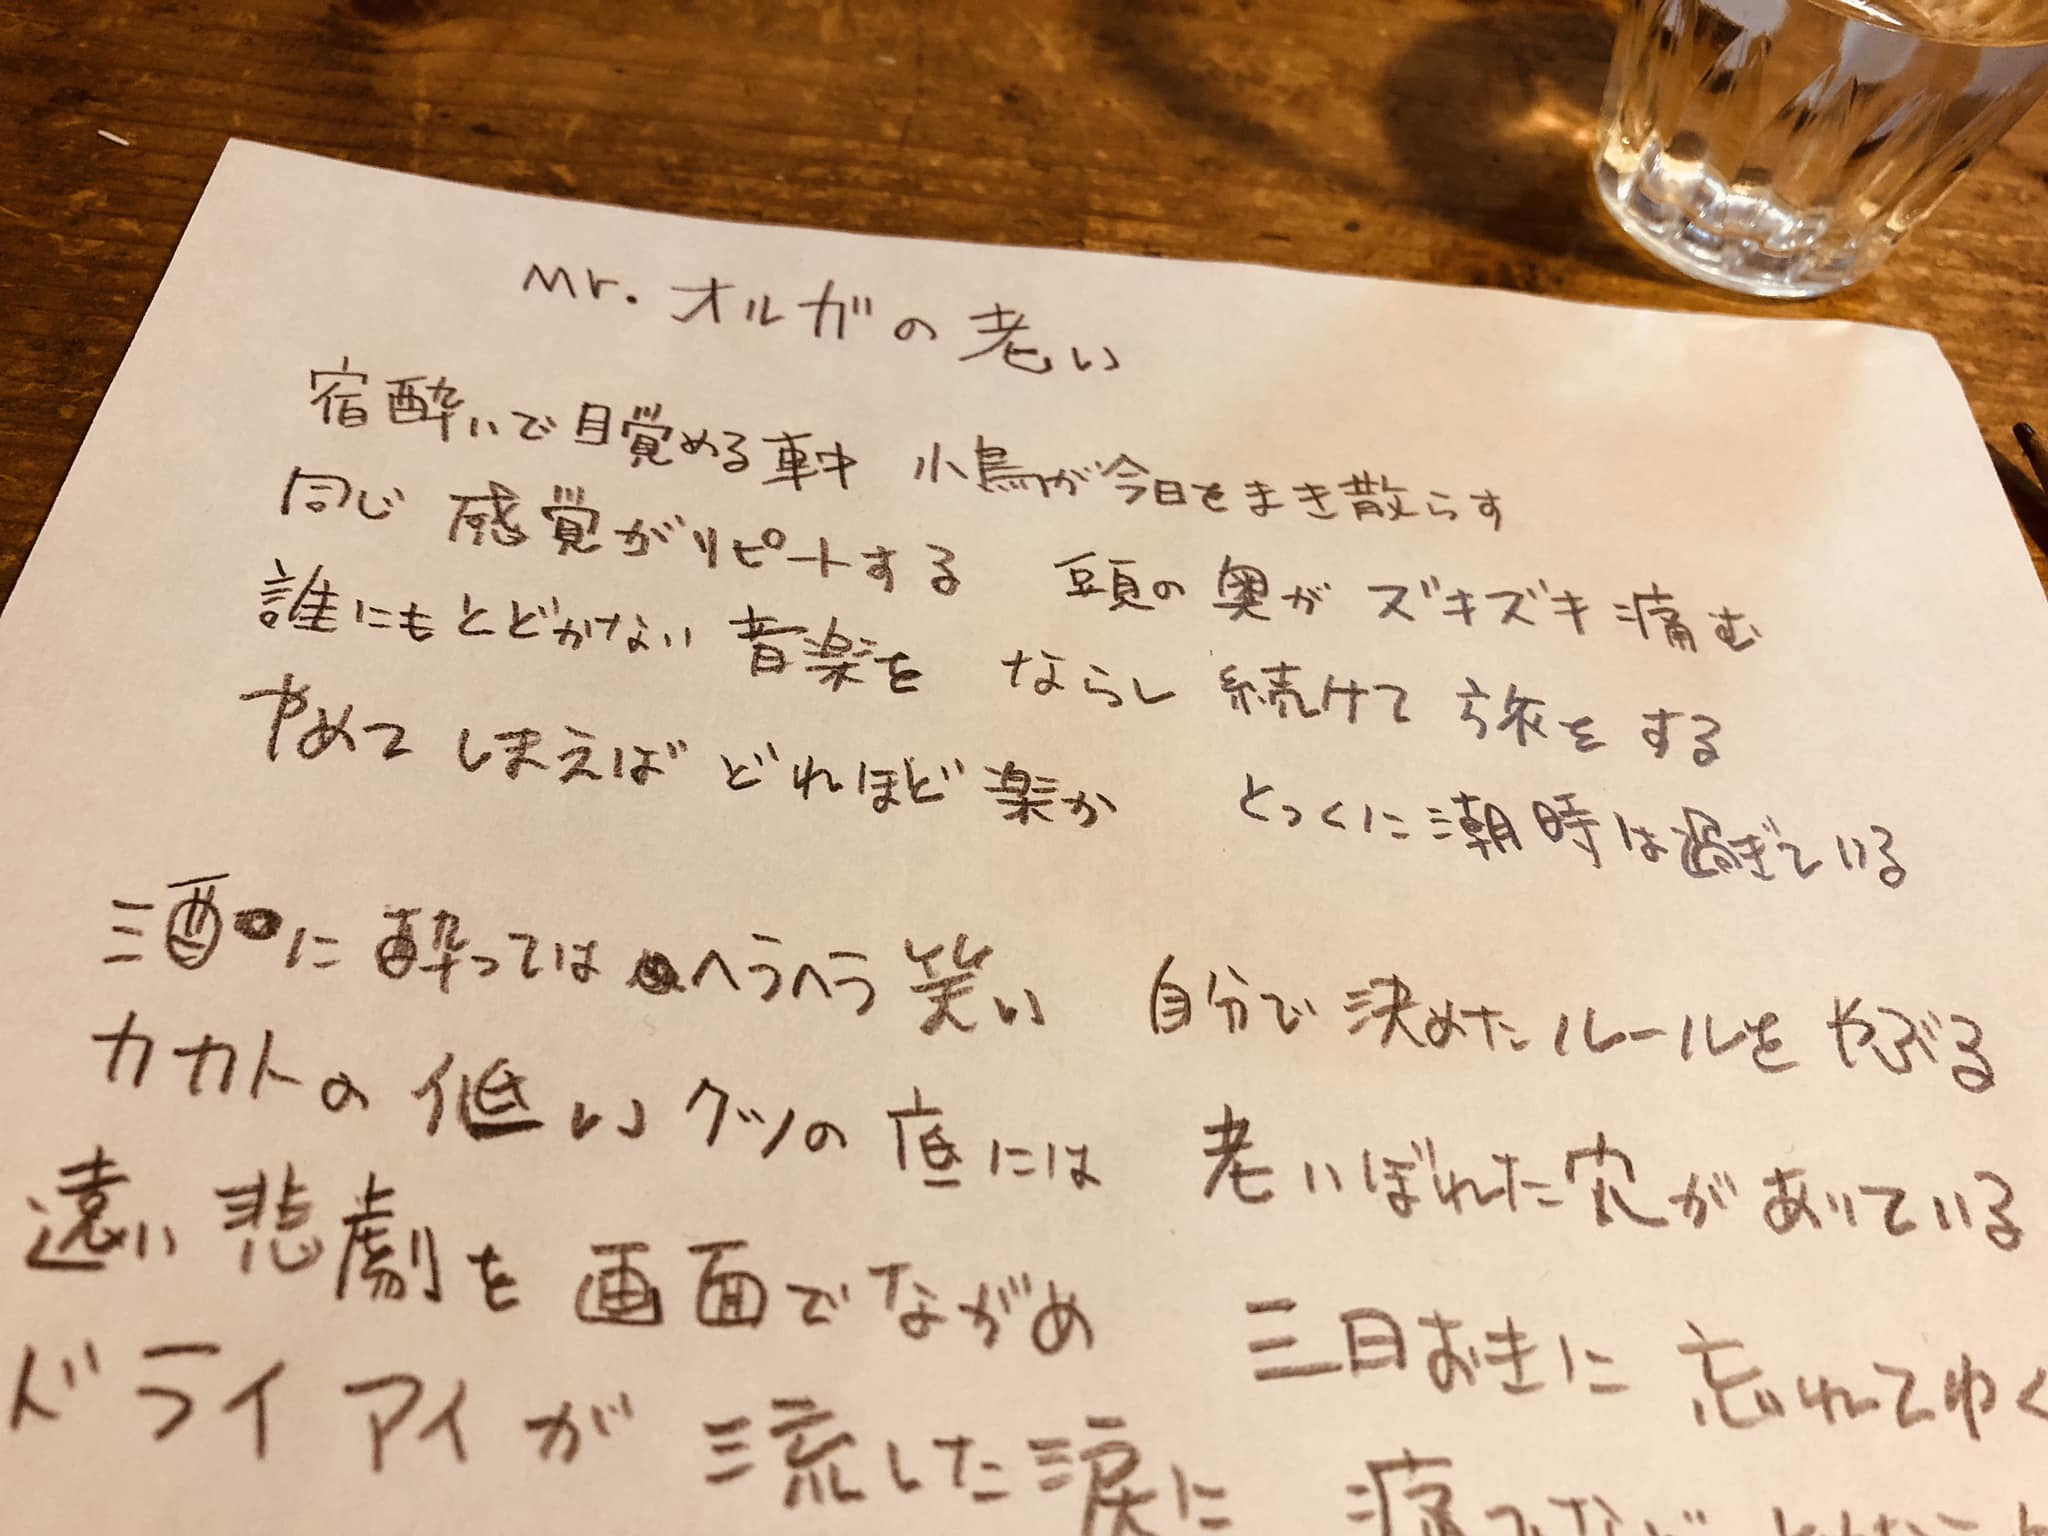 Mr. オルガの老い
宿酔いで目覚める車中 小鳥が今日をまき散らす
同じ感覚がリピートする 頭の奥がズキズキ痛む
誰にもとどかない音楽を ならし続けて旅をする
やめてしまえばどれほど楽か とっくに潮時は過ぎている
酒に酔ってはヘラヘラ笑い 自分で決めたルールをやぶる
カカトの低いクツの底には 老いぼれた穴があいている
遠い悲劇を画面でながめ 三日おきに忘れてゆく
ドライアイが流した涙に